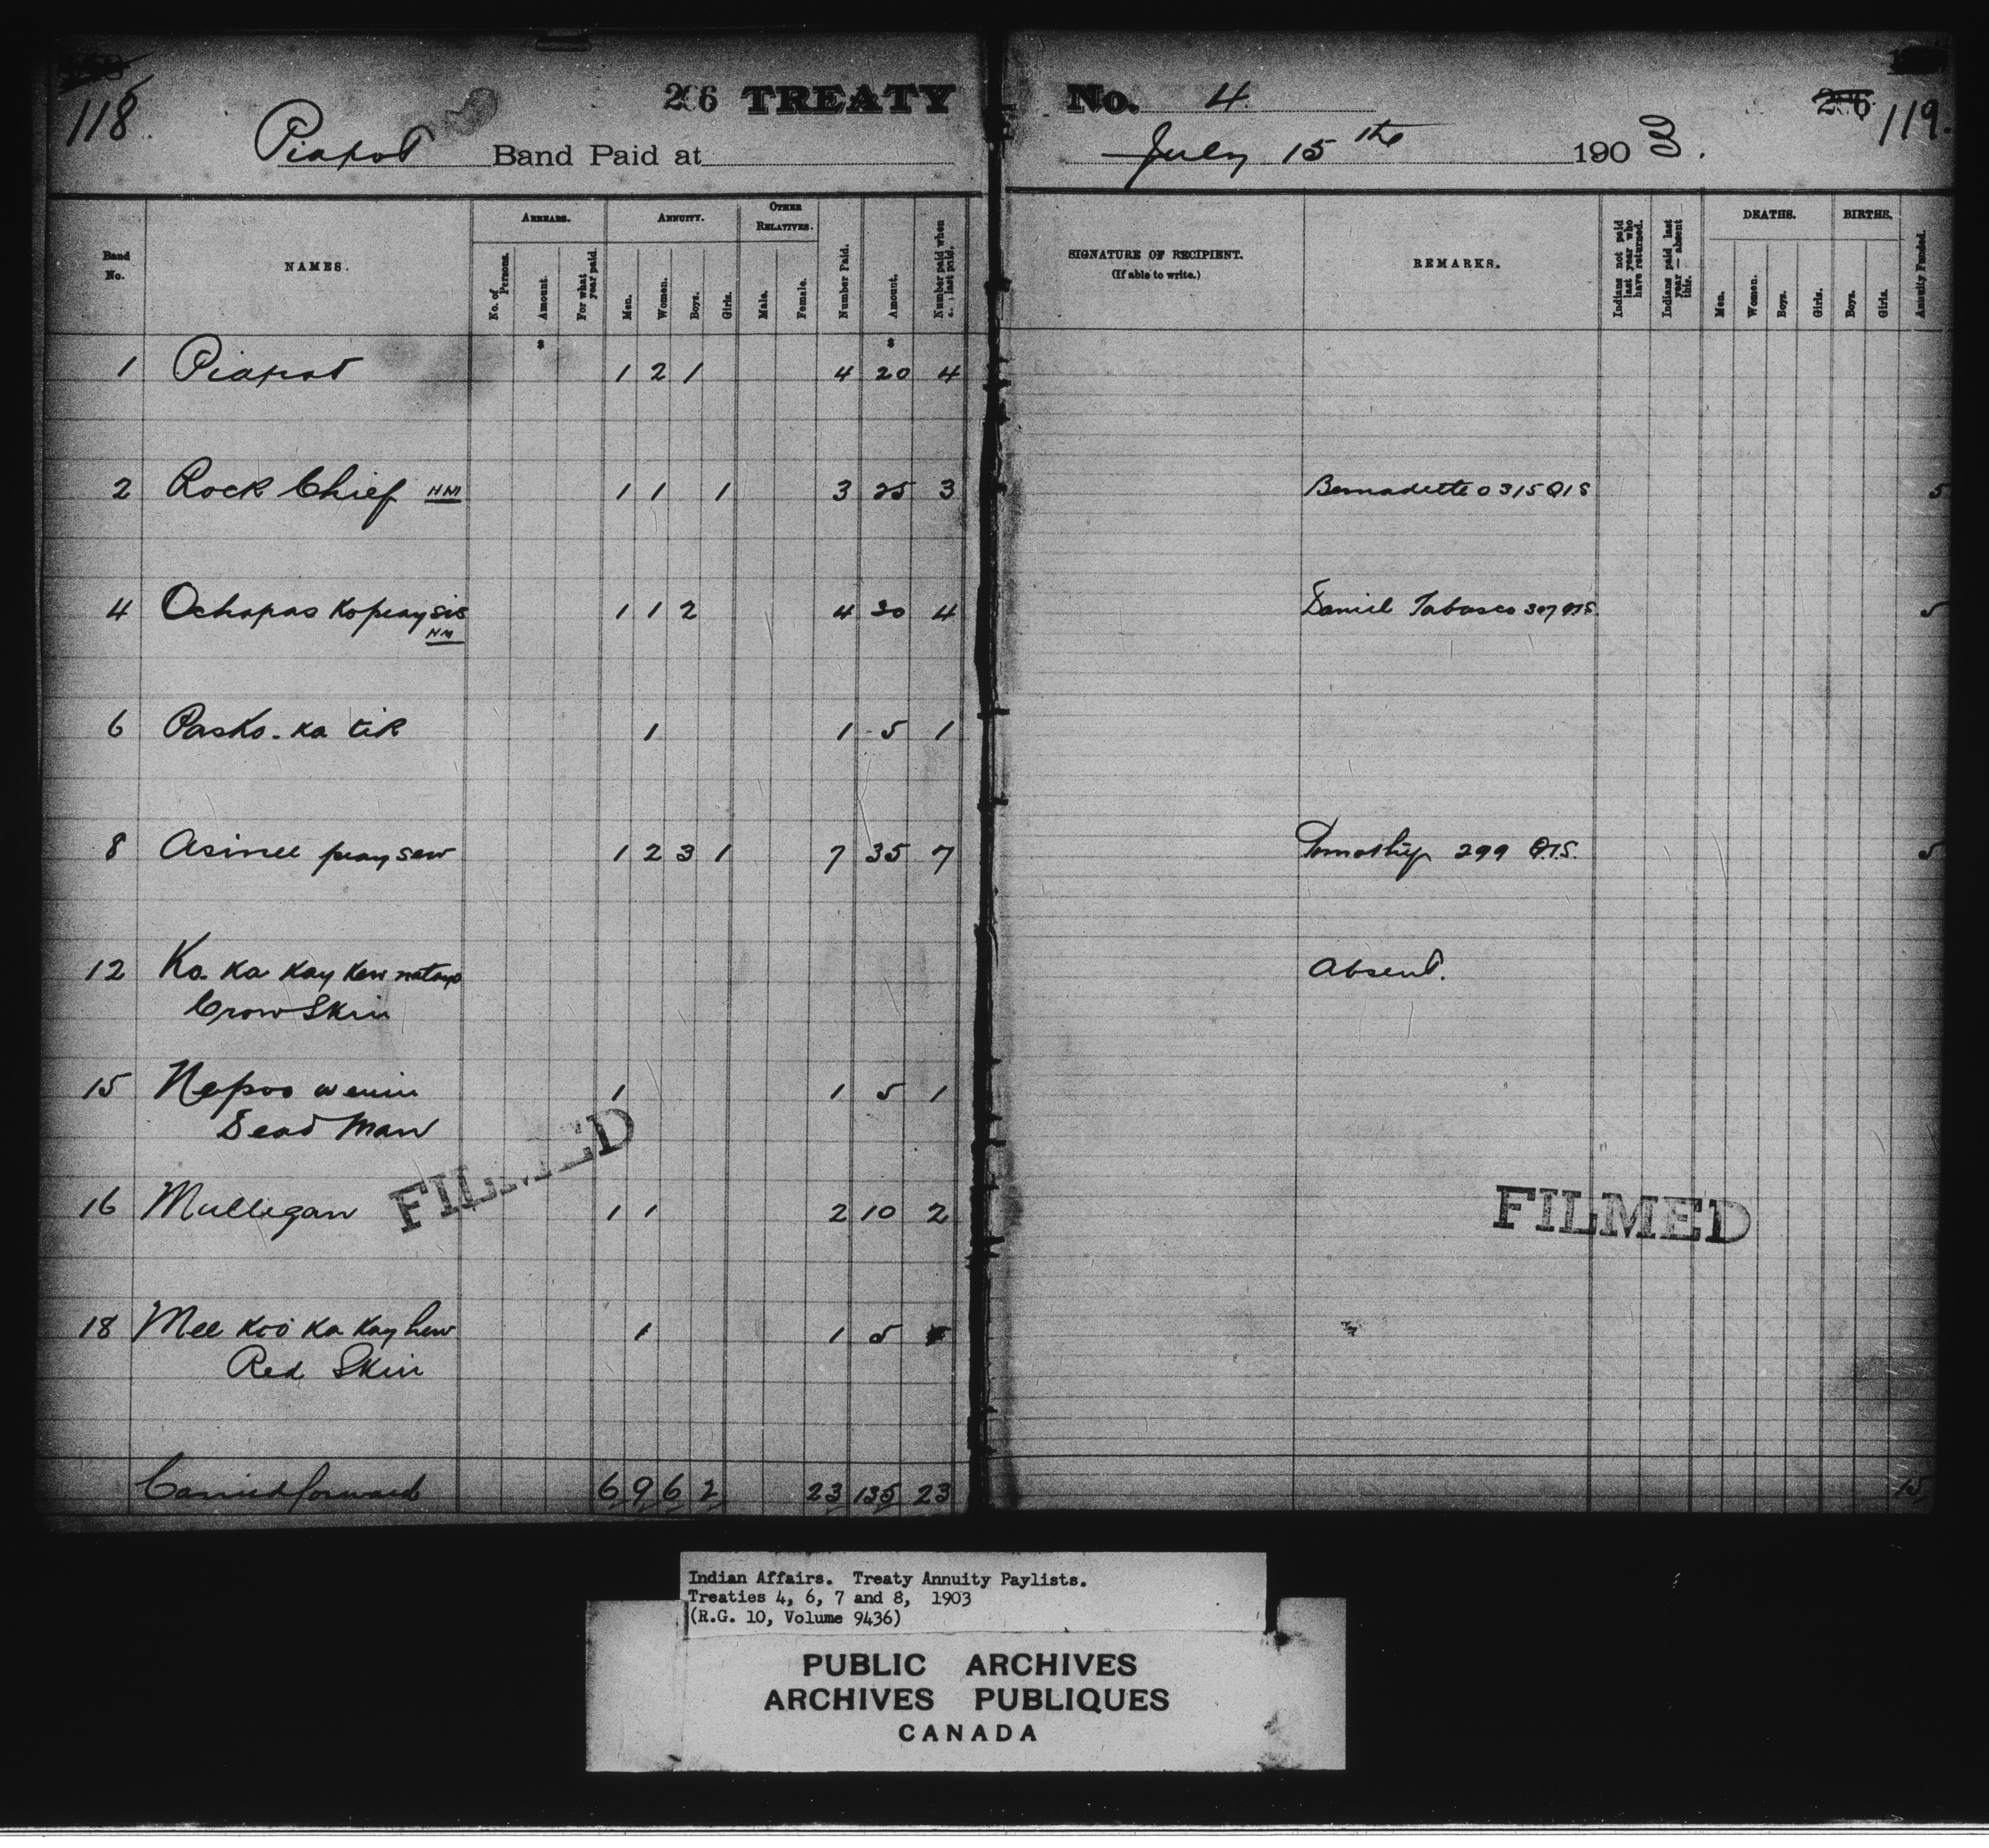 118
206 TREATY No. 4
206 119.
Piapot Band Paid at July 15 the 1903.
Band No.
NAMES.
ARREARS.
No. of Persons.
Amount.
For what year paid.
ANNUITY.
Men.
Women.
Boys.
Girls.
OTHER RELATIVES.
Male.
Female.
Number Paid.
Amount.
Number paid when last paid.
SIGNATURE OF RECIPIENT.
(If able to write.)
REMARKS.
Indians not paid last year who have returned.
Indians paid last year—absent this.
DEATHS.
Men.
Women.
Boys.
Girls.
BIRTHS.
Boys.
Girls.
Annuity Funded.
1 Piapot 1 2 1 4 20 4
2 Rock Chief HM 1 1 1 3 25 3 Bernadette 0315 QIS 5
4 Ochapas Kopeaysis 1 1 2 4 30 4 Daniel Tabasco 307 QIS 5
HM
6 Pasko-ka tik 1 1 5 1
8 Asinee peaysew 1 2 3 1 7 35 7 Timothy 299 Q.I.S. 5
12 Ko. ka kay kew natayo Absent.
Crow Skin
15 Nepoo wenin 1 1 5 1
Dead Man
16 Mulligan 1 1 2 10 2
18 Mee koo ka kay hew 1 1 5
Red Skin
Carried forward 6 9 6 2 23 135 23 15
FILMED
FILMED
Indian Affairs. Treaty Annuity Paylists.
Treaties 4, 6, 7 and 8, 1903
(R.G. 10, Volume 9436)
PUBLIC ARCHIVES
ARCHIVES PUBLIQUES
CANADA